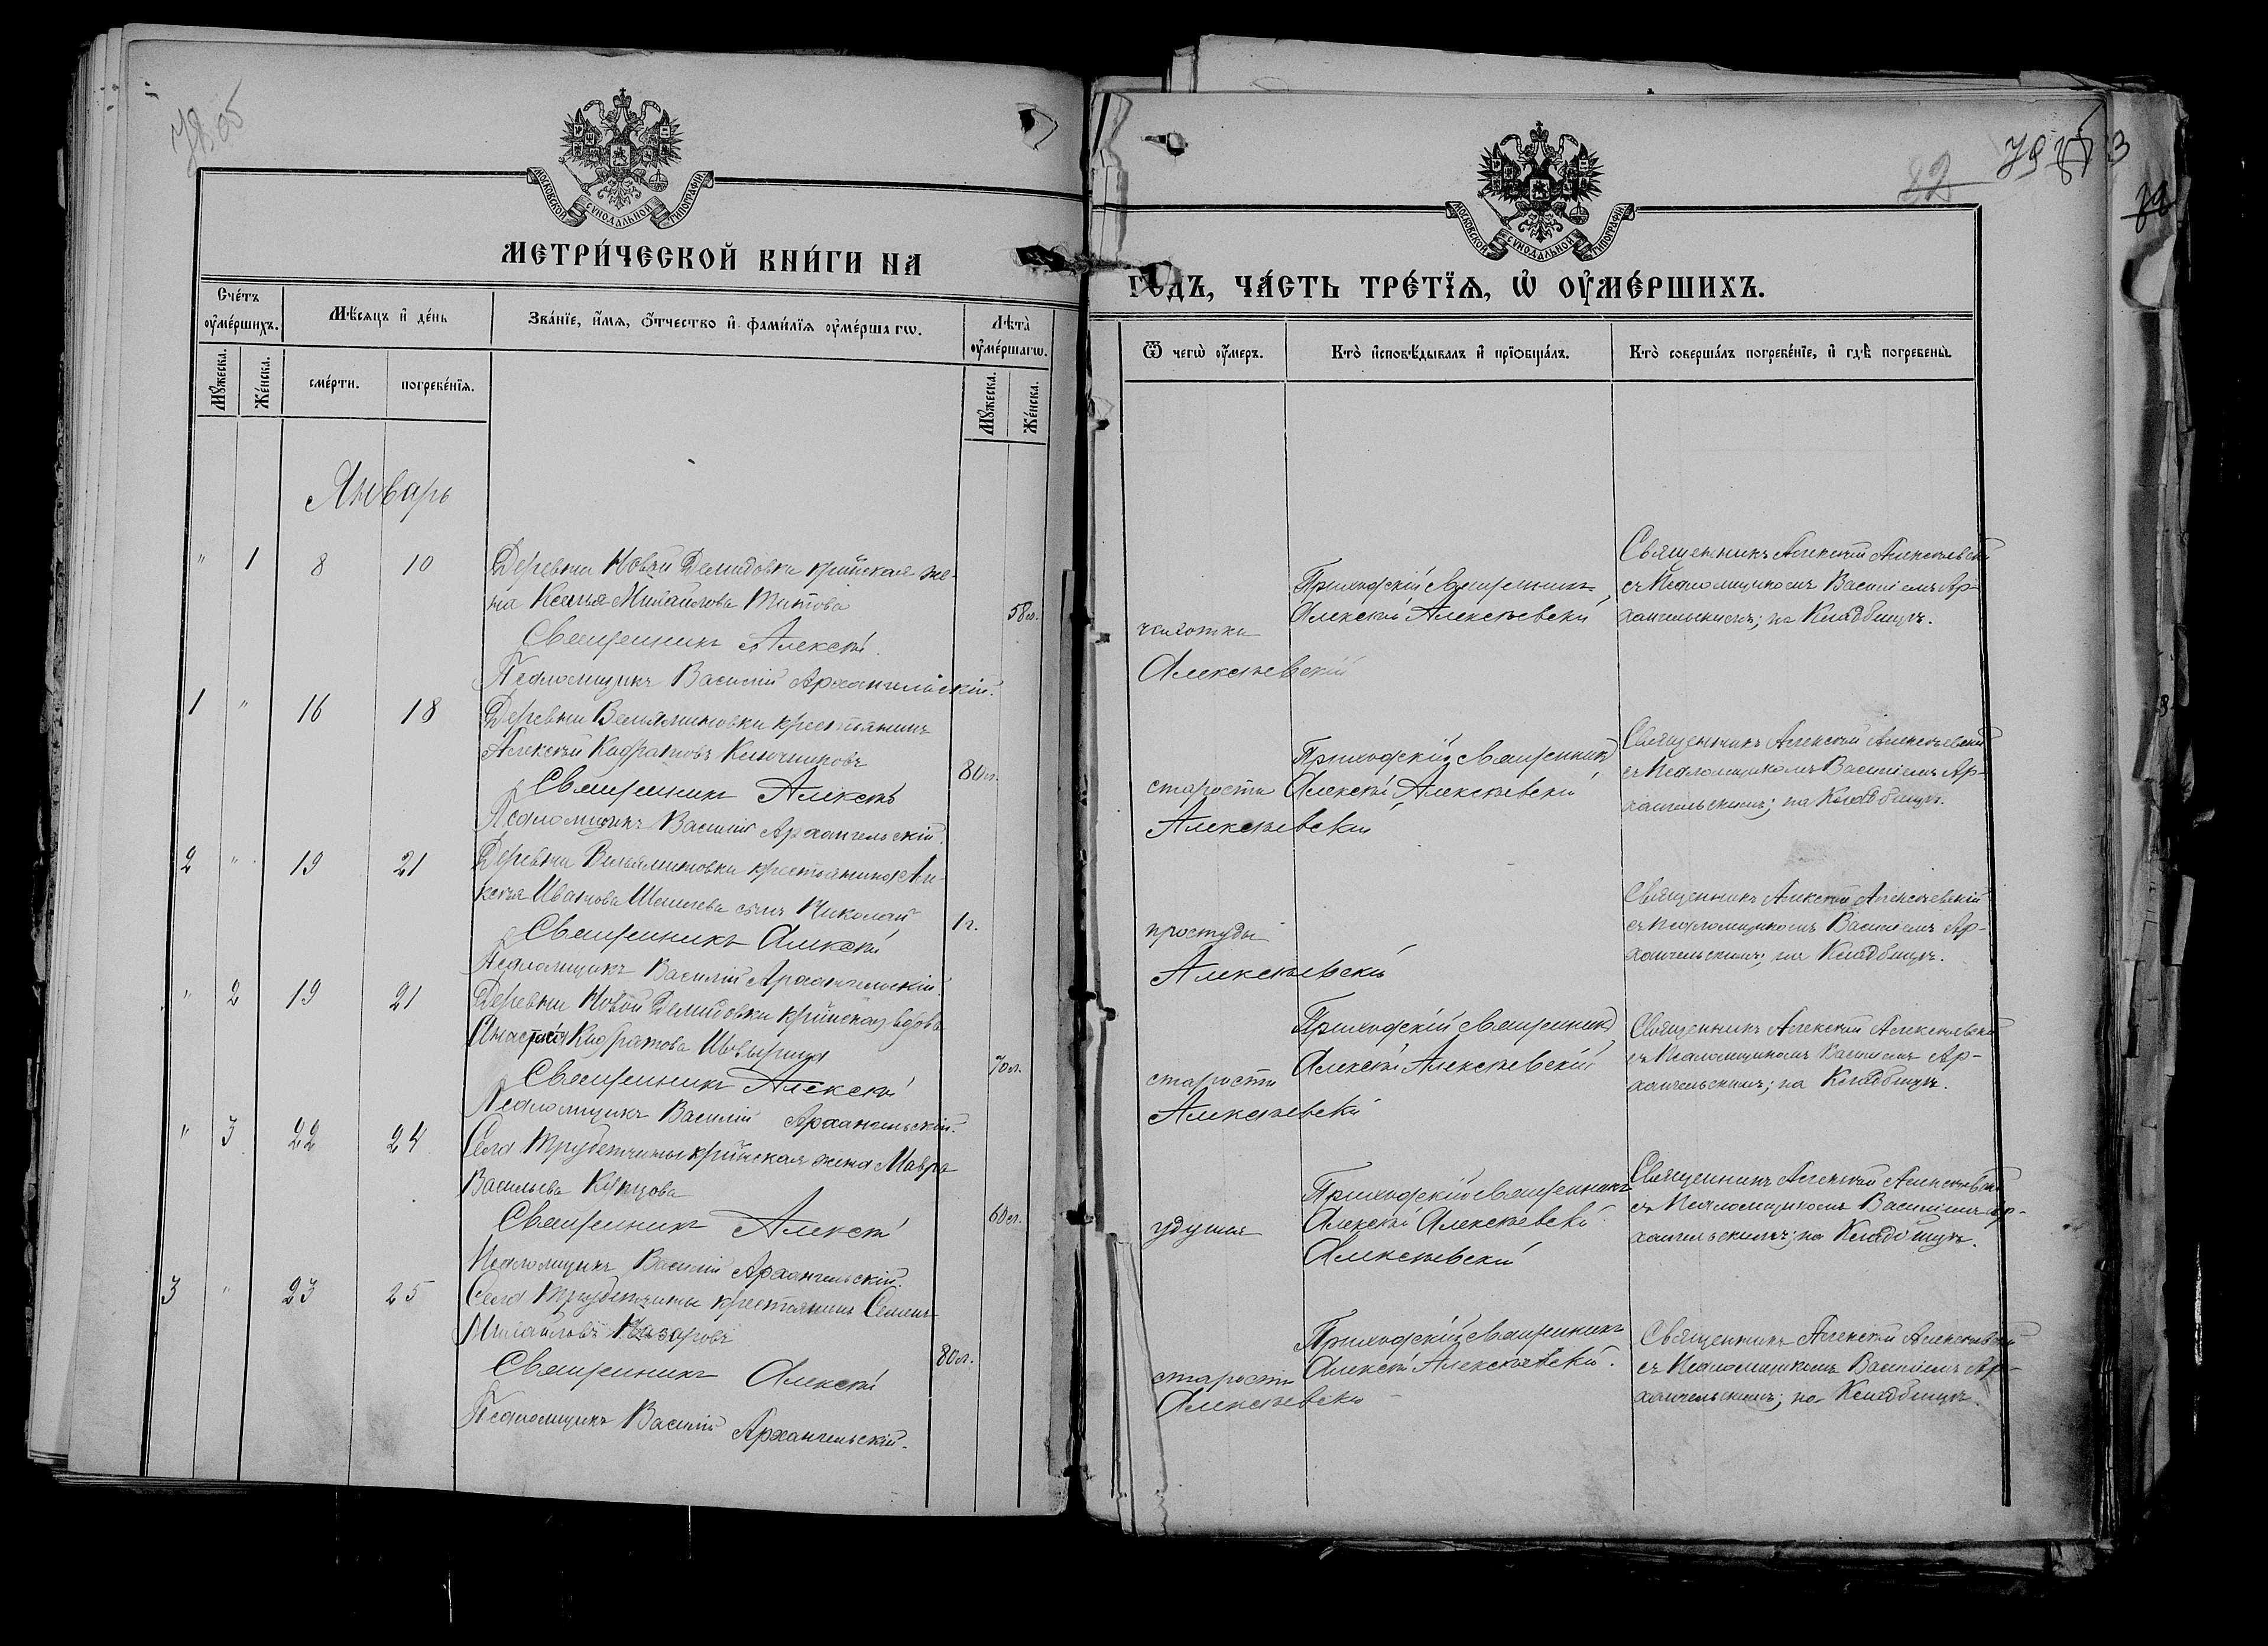 78 об
МОСКОВСКОЙ СѴНОДАЛЬНОЙ ТИПОГРАФІИ
МЕТРИ́ЧЕСКОЙ КНИ́ГИ НА
Сче́тъ ᲂу҆ме́ршихъ.
Мѣ́сяцъ и҆ де́нь
Зва́нїе, и҆́мѧ, ѻ҆́тчество и҆ фами́лїѧ ᲂу҆ме́ршагѡ.
Лѣ́та ᲂу҆ме́ршагѡ.
Мꙋ́жеска.
Же́нска.
сме́рти.
погребе́нїѧ.
Мꙋ́жеска.
Же́нска.
Январь
" 1 8 10 Деревни Новой Демидовки кр̃йнская же-
на Ксенья Михайлова Титова
58 л.
Священникъ Алексѣй
Псаломщикъ Василій Архангельскій.
1 " 16 18 Деревни Вельяминовки крестьянинъ
Алексѣй Кодратовъ Ключниковъ
80 л.
Священникъ Алексѣй
Псаломщикъ Василій Архангельскій.
2 " 19 21 Деревни Вельяминовки крестьянина Але-
ксѣя Иванова сынъ Николай
1 г.
Священникъ Алексѣй
Псаломщикъ Василій Архангельскій.
" 2 19 21 Деревни Новой Демидовки кр̃йнская вдова
Кодратова
70 л.
Священникъ Алексѣй
Псаломщикъ Василій Архангельскій.
" 3 22 24 Села Трубетчины кр̃йнская жена Мавра
Васильева Купцова
60 л.
Священникъ Алексѣй
Псаломщикъ Василій Архангельскій.
3 " 23 25 Села Трубетчины крестьянинъ Семенъ
Михайловъ Назаровъ
80 л.
Священникъ Алексѣй
Псаломщикъ Василій Архангельскій.
82
79
МОСКОВСКОЙ СѴНОДАЛЬНОЙ ТИПОГРАФІИ
ГО́ДЪ, ЧА́СТЬ ТРЕ́ТЇѦ, Ѡ҆ ОУ҆МЕ́РШИХЪ.
Ѿ чегѡ̀ ᲂу҆́меръ.
Кто̀ и҆сповѣ́дывалъ и҆ прїѻбща́лъ.
Кто̀ соверша́лъ погребе́нїе, и҆ гдѣ̀ погребены̀.
чахотки
Приходскій священникъ
Алексѣй Алексѣевскій
Священникъ Алексѣй Алексѣевскій
съ Псаломщикомъ Василіемъ Ар-
хангельскимъ; на Кладбищѣ.
Алексѣевскій
старости
Приходскій священникъ
Алексѣй Алексѣевскій
Священникъ Алексѣй Алексѣевскій
съ Псаломщикомъ Василіемъ Ар-
хангельскимъ; на Кладбищѣ.
Алексѣевскій
простуды
Священникъ Алексѣй Алексѣевскій
съ Псаломщикомъ Василіемъ Ар-
хангельскимъ; на Кладбищѣ.
Алексѣевскій
старости
Приходскій священникъ
Алексѣй Алексѣевскій
Священникъ Алексѣй Алексѣевскій
съ Псаломщикомъ Василіемъ Ар-
хангельскимъ; на Кладбищѣ.
Алексѣевскій
удушья
Приходскій священникъ
Алексѣй Алексѣевскій
Священникъ Алексѣй Алексѣевскій
съ Псаломщикомъ Василіемъ Ар-
хангельскимъ; на Кладбищѣ.
Алексѣевскій
старости
Приходскій священникъ
Алексѣй Алексѣевскій.
Священникъ Алексѣй Алексѣевскій
съ Псаломщикомъ Василіемъ Ар-
хангельскимъ; на Кладбищѣ.
Алексѣевскій